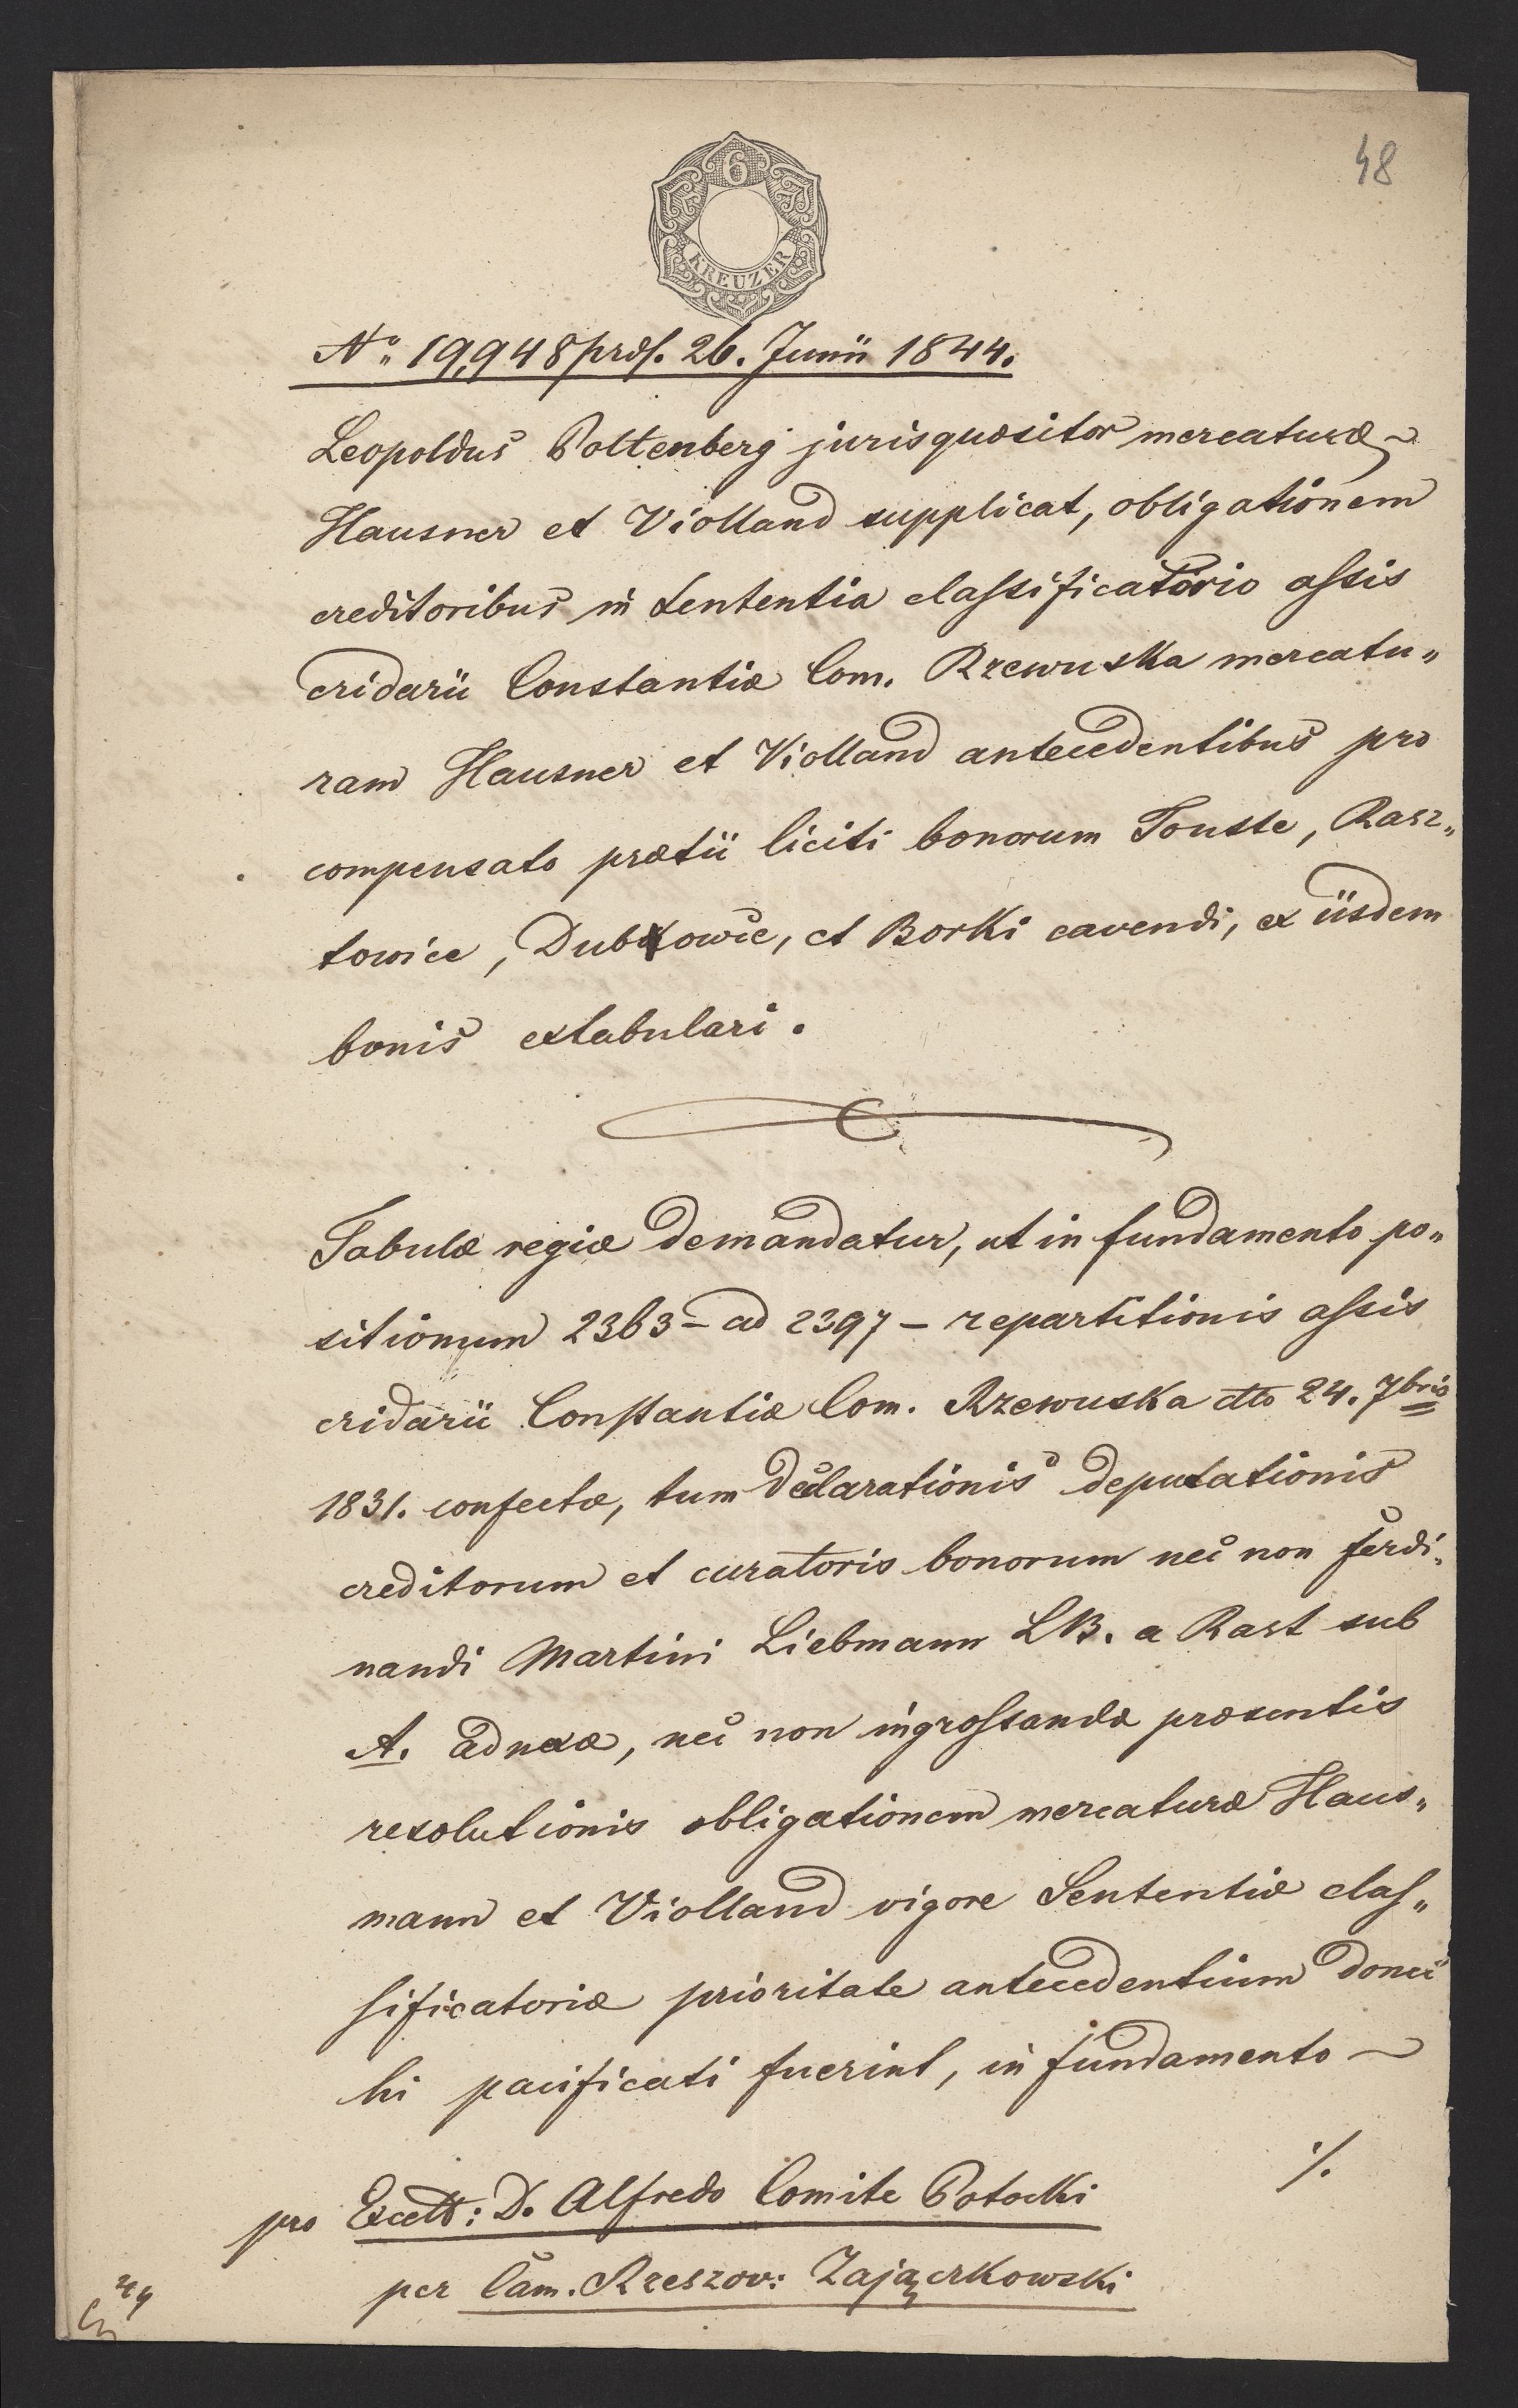 48
6
KREUZER
No. 19,948 præs. 26. Junii 1844.
Leopoldus Poltenberg jurisquæsitor mercaturæ
Hausner et Violland supplicat, obligationem
creditoribus in Sententia classificatorio assis
cridarii Constantiæ Com. Rzewuska mercatu„
ram Hausner et Violland antecedentibus pro
compensato prætii liciti bonorum Touste, Rasz„
towice, Dubkowic, et Borki cavendi, ex iisdem
bonis extabulari.
Tabulæ regiæ demandatur, ut in fundamento po„
sitionum 2363 – ad 2397 – repartitionis assis
cridarii Constantiæ Com. Rzewuska dto 24. 7bris
1831. confectæ, tum declarationis deputationis
creditorum et curatoris bonorum nec non Ferdi„
nandi Martini Liebmann LB. a Rast sub
A. adnexæ, nec non ingrossandæ præsentis
resolutionis obligationem mercaturæ Haus„
mann et Violland vigore Sententiæ clas„
sificatoriæ prioritate antecedentium donec
hi pacificati fuerint, in fundamento
./.
pro Excell: D. Alfredo Comite Potocki
per Cam. Rzeszov: Zajączkowski